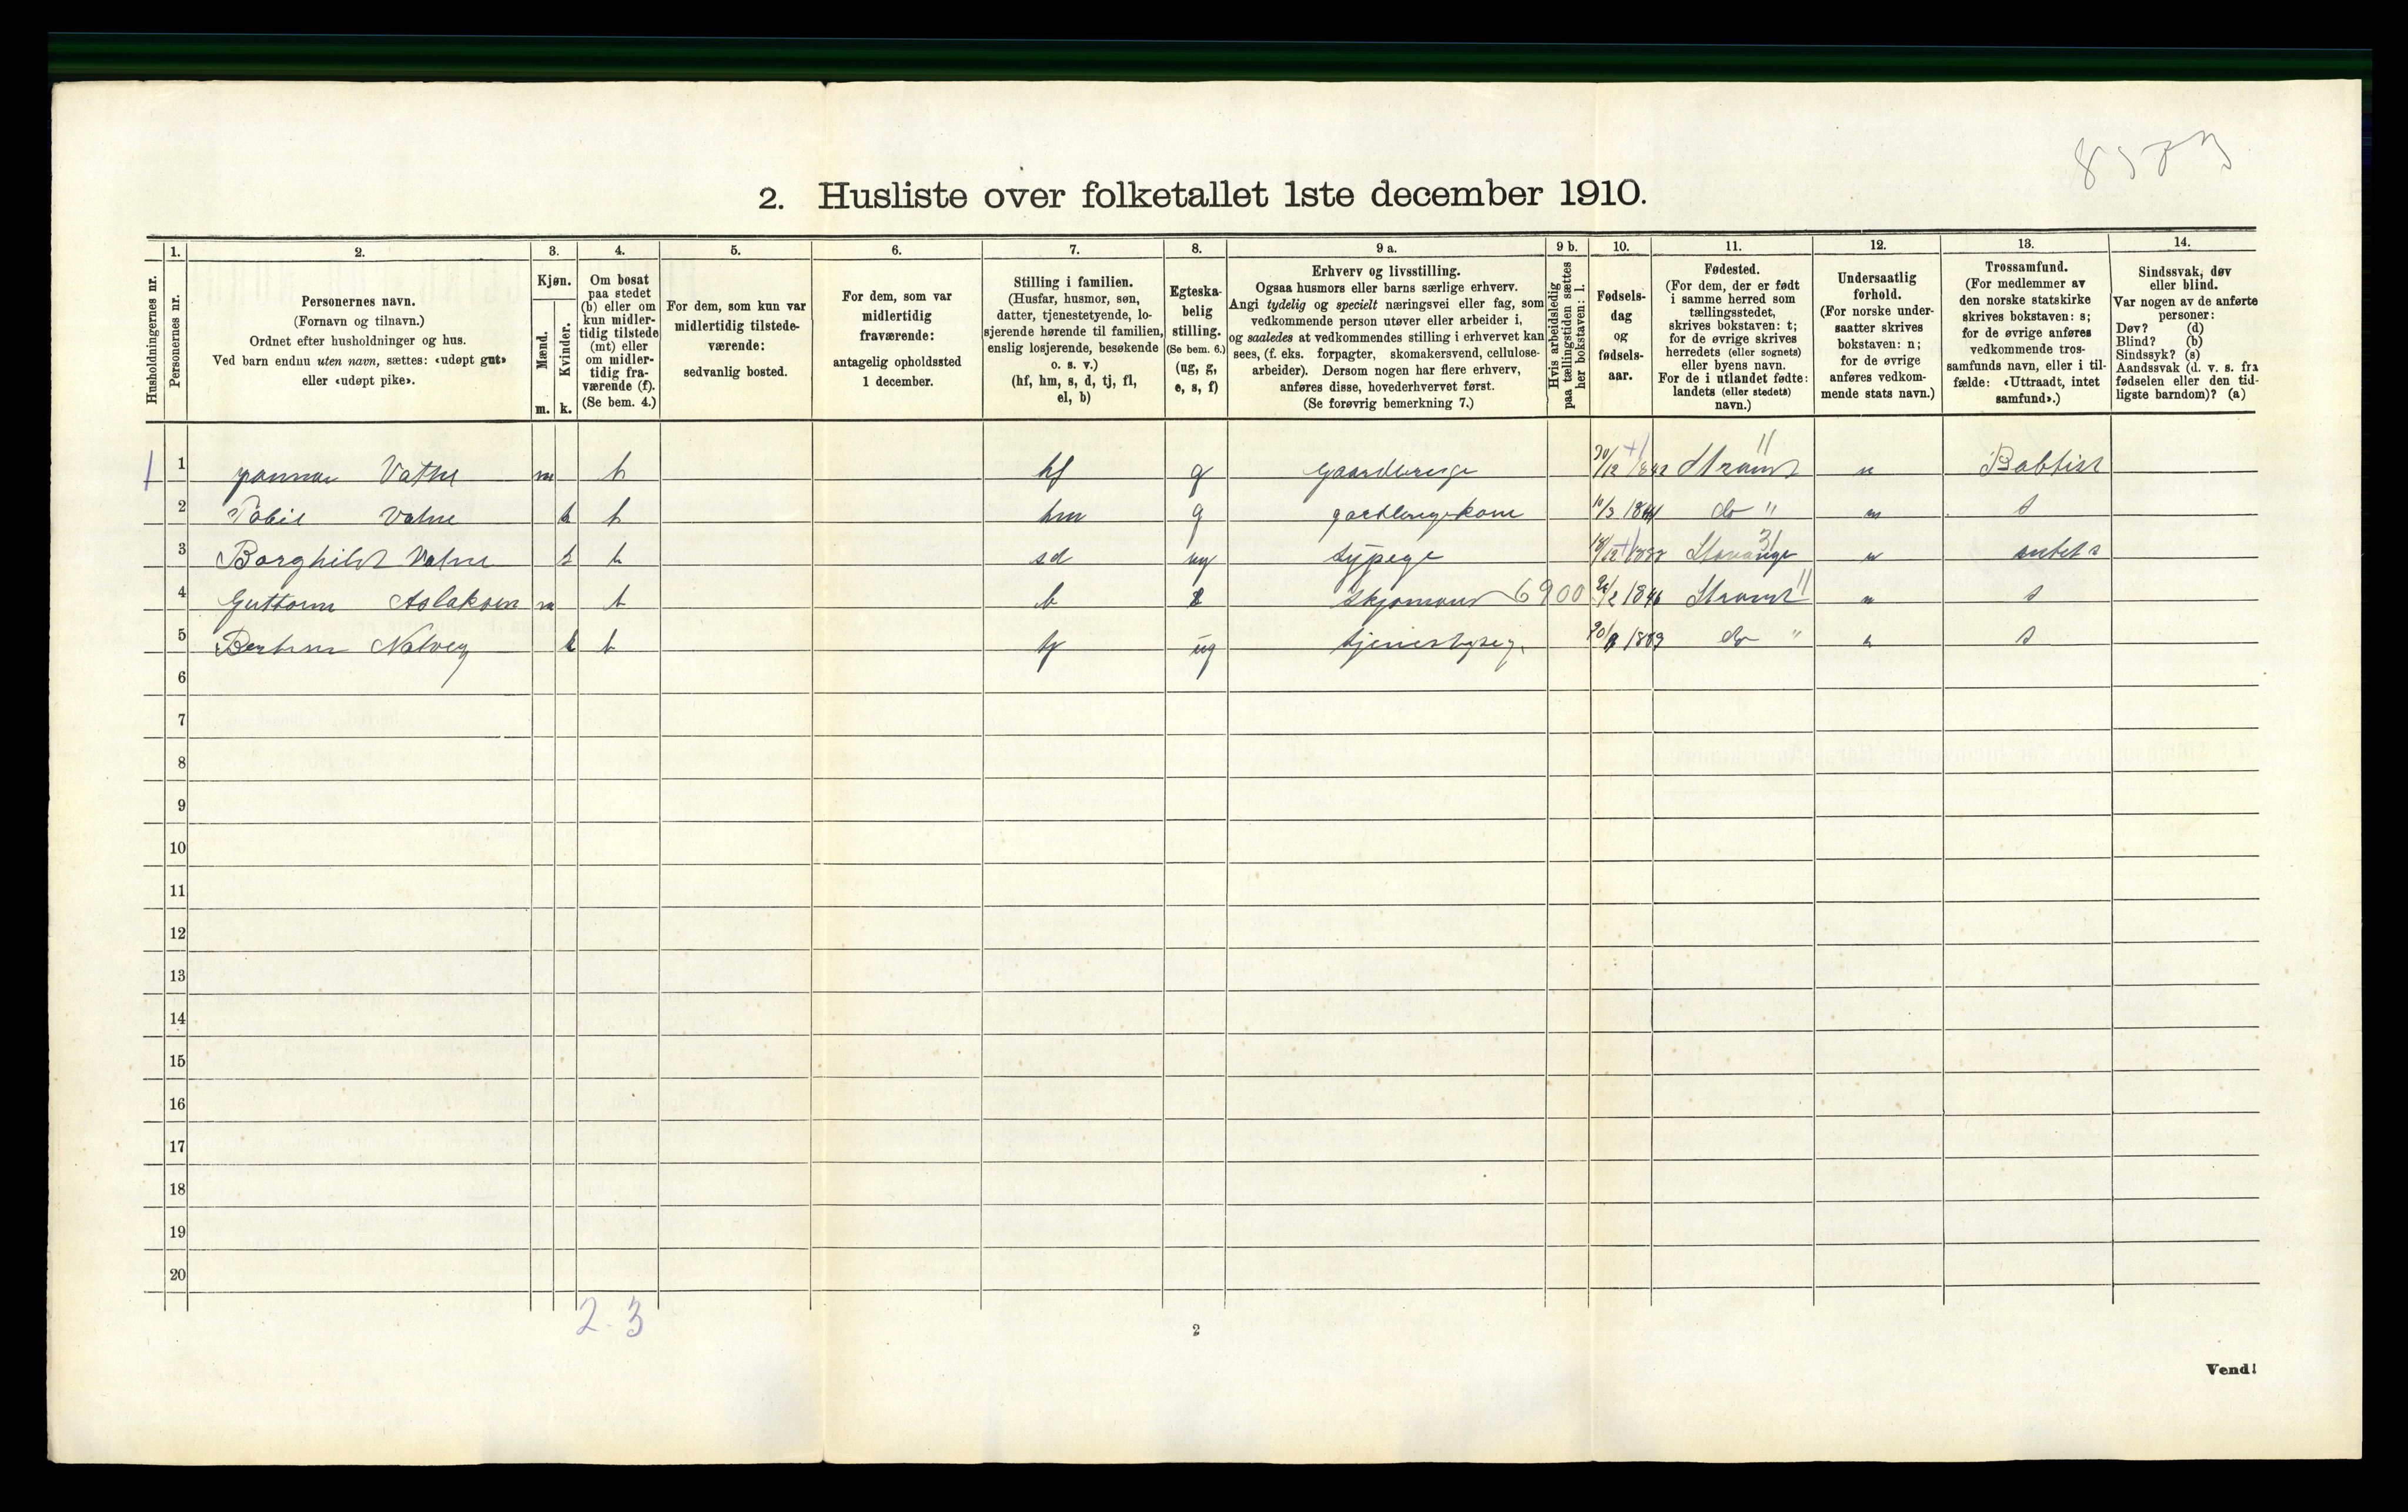 2. Husliste over folketallet 1ste december 1910.
1. 2. 3. 4. 5. 6. 7. 8. 9 a. 9 b. 10. 11. 12. 13. 14.
Husholdningernes nr.
Personernes nr.
Personernes navn.
(Fornavn og tilnavn.)
Ordnet efter husholdninger og hus.
Ved barn endnu uten navn, sættes: «udøpt gut»
eller «udøpt pike».
Kjøn.
Mænd.
Kvinder.
m. k.
Om bosat
paa stedet
(b) eller om
kun midler-
tidig tilstede
(mt) eller
om midler-
tidig fra-
værende (f).
(Se bem. 4.)
For dem, som kun var
midlertidig tilstede-
værende:
sedvanlig bosted.
For dem, som var
midlertidig
fraværende:
antagelig opholdssted
1 december.
Stilling i familien.
(Husfar, husmor, søn,
datter, tjenestetyende, lo-
sjerende hørende til familien,
enslig losjerende, besøkende
o. s. v.)
(hf, hm, s, d, tj, fl,
el, b)
Egteska-
belig
stilling.
(Se bem. 6.)
(ug, g,
e, s, f)
Erhverv og livsstilling.
Ogsaa husmors eller barns særlige erhverv.
Angi tydelig og specielt næringsvei eller fag, som
vedkommende person utøver eller arbeider i,
og saaledes at vedkommendes stilling i erhvervet kan
sees, (f. eks. forpagter, skomakersvend, cellulose-
arbeider). Dersom nogen har flere erhverv,
anføres disse, hovederhvervet først.
(Se forøvrig bemerkning 7.)
Hvis arbeidsledig
paa tællingstiden sættes
her bokstaven: l.
Fødsels-
dag
og
fødsels-
aar.
Fødested.
(For dem, der er født
i samme herred som
tællingsstedet,
skrives bokstaven: t;
for de øvrige skrives
herredets (eller sognets)
eller byens navn.
For de i utlandet fødte:
landets (eller stedets)
navn.)
Undersaatlig
forhold.
(For norske under-
saatter skrives
bokstaven: n;
for de øvrige
anføres vedkom-
mende stats navn.)
Trossamfund.
(For medlemmer av
den norske statskirke
skrives bokstaven: s;
for de øvrige anføres
vedkommende tros-
samfunds navn, eller i til-
fælde: «Uttraadt, intet
samfund».)
Sindssvak, døv
eller blind.
Var nogen av de anførte
personer:
Døv? (d)
Blind? (b)
Sindssyk? (s)
Aandssvak (d. v. s. fra
fødselen eller den tid-
ligste barndom)? (a)
1 Vatne m b hf g n Babtist
2 Vatne k b hm g 10/3 do " n s
3 Borghild Vatne k b sd ug sypige Stavanger n
4 Guttorm Aslaksen m b b 6900 Strand n s
5 Natvig k b tj ug do " n s
6
7
8
9
10
11
12
13
14
15
16
17
18
19
20
2 3
2
Vend!